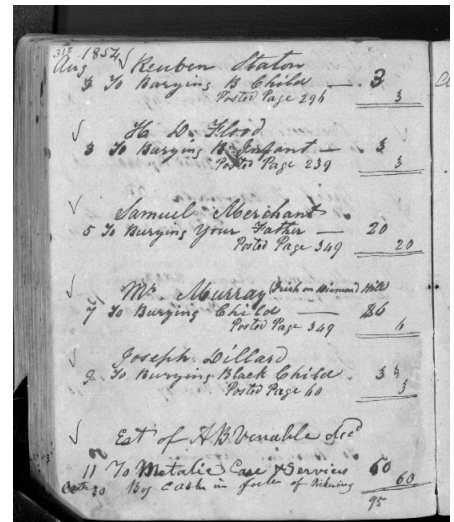 318
Aug 1854
Reuben Staton
3 To Burying B Child — 3
Posted Page 296 3
H. D. Flood
3 To Burying B Infant — 3
Posted Page 239 3
Samuel Merchant
5 To Burying Your Father — 20
Posted Page 349 20
Mr. Murray (Irish on Diamond Hill)
7 To Burying Child — 6
Posted Page 349 6
Joseph Dillard
9 To Burying Black Child 3
Posted Page 60 3
Est of A B Venable Decd
11 To Metalic Case & Services 60
Octr 30 By Cash in full of 60
95